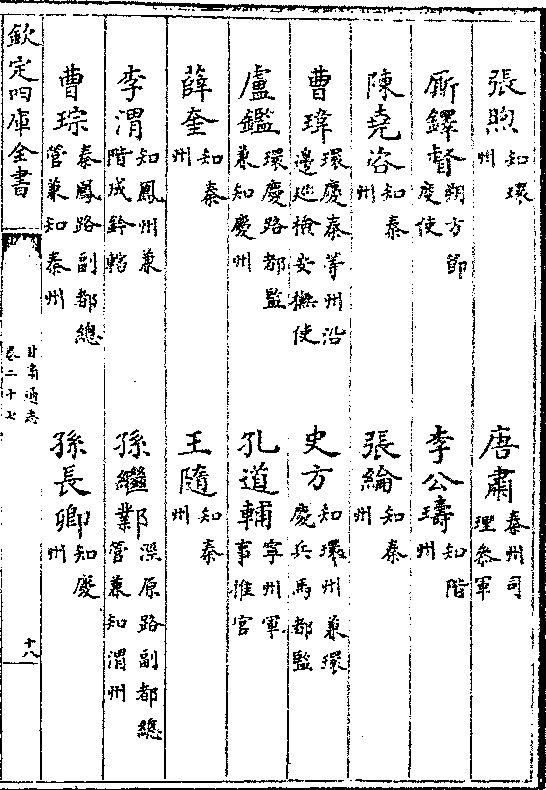 張煦知環州　唐肅秦州司理參軍
厮鐸督朔方節度使　李公璹知階州
陳堯咨知秦州　張綸知秦州
曹瑋環慶秦等州沿邊廵檢安撫使　史方知環州兼環慶兵馬都監
盧鑑環慶路都監兼知慶州　孔道輔寧州軍事推官
薛奎知秦州　王隨知秦州
李渭知鳳州兼階成鈐轄　孫繼鄴涇原路副都總管兼知渭州
曹琮秦鳳路副都總管兼知秦州　孫長卿知慶州
欽定四庫全書
甘肅通志
卷二十七
十八